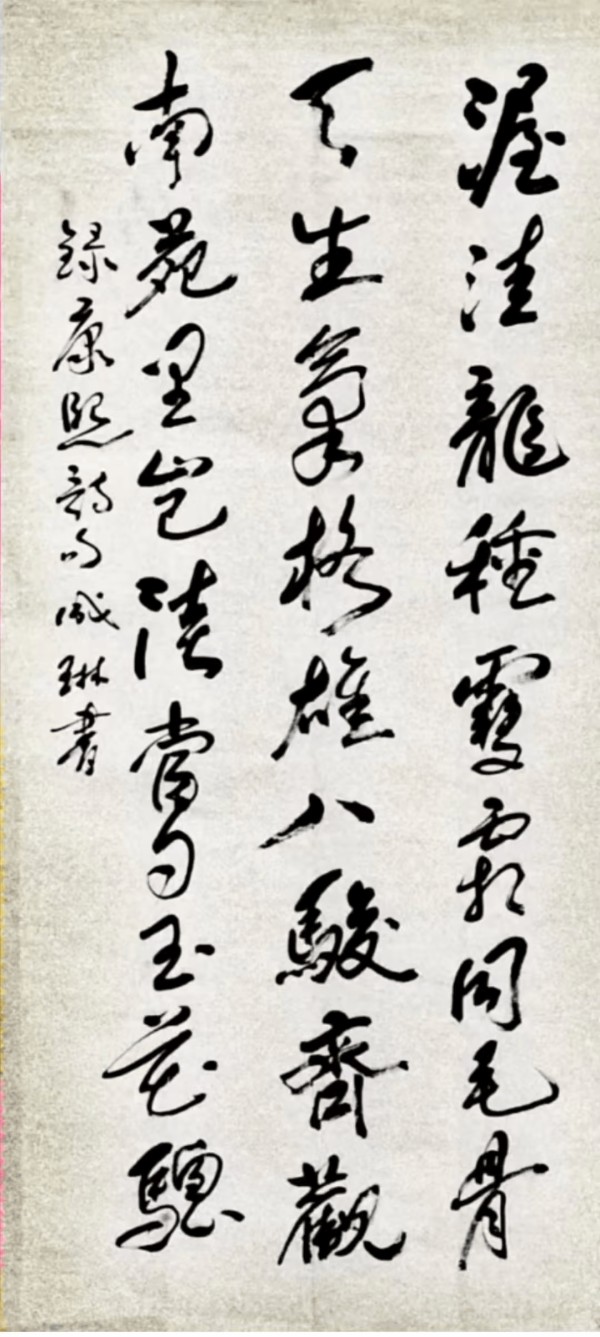 渥洼龍種雪霜同毛骨
天生氣格雄八駿齊觀
南苑里豈當日玉花驄
錄康熙詩句琳書